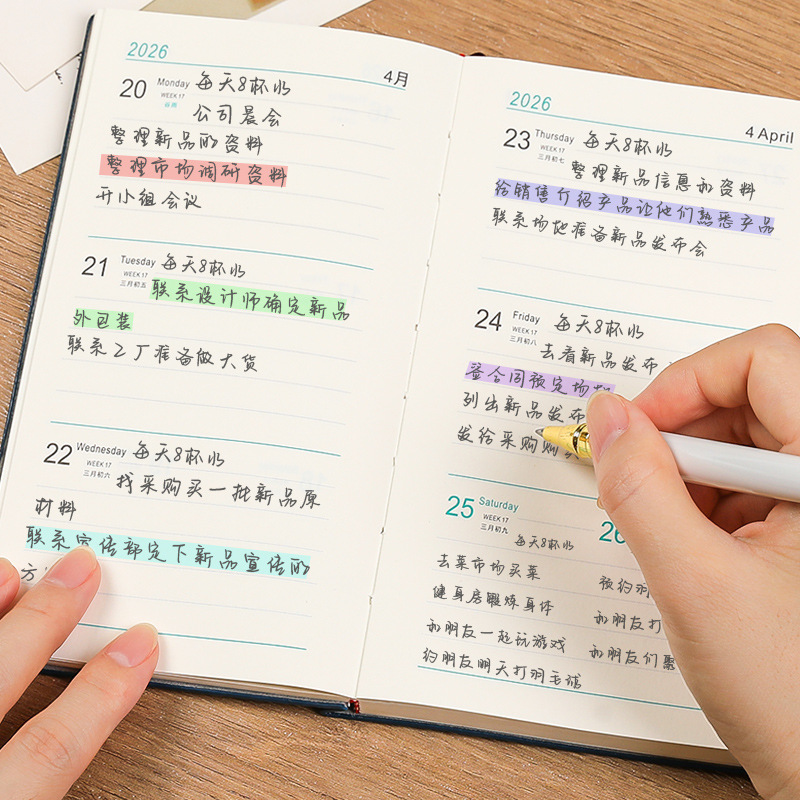 2026
4月
20 Monday 每天8杯水
WEEK 17
谷雨
公司晨会
整理新品的资料
整理市场调研资料
开小组会议
21 Tuesday 每天8杯水
WEEK 17
三月初五
联系设计师确定新品
外包装
联系工厂准备做大货
22 Wednesday 每天8杯水
WEEK 17
三月初六
找采购买一批新品原
材料
联系宣传部定下新品宣传的
方
2026
4 April
23 Thursday 每天8杯水
WEEK 17
三月初七
整理新品信息和资料
给销售介绍产品让他们熟悉产品
联系场地准备新品发布会
24 Friday 每天8杯水
WEEK 17
三月初八
去看新品发布
签合同预定场地
列出新品发布
发给采购购
25 Saturday
WEEK 17
三月初九
每天8杯水
去菜市场买菜
健身房锻炼身体
和朋友一起玩游戏
约朋友明天打羽毛球
26
预约羽
和朋友打
和朋友们聚